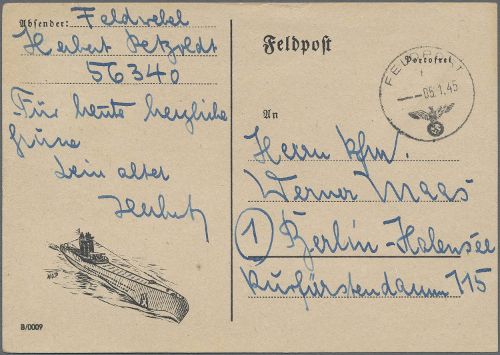 Absender: Feldwebel
Herbert Petzoldt
56340
Für heute herzliche
Grüße
Dein alter
Herbert
B/0009
Feldpost
Portofrei
FELDPOST
--05.1.45
An
Herrn Kfm.
Werner Maas
1 Berlin-Halensee
Kurfürstendamm 115